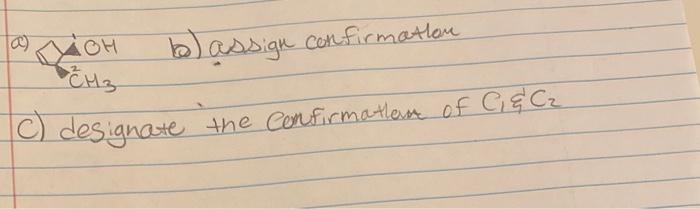 a) 1 OH b) assign confirmation
2 CH3
c) designate the confirmation of C1 & C2